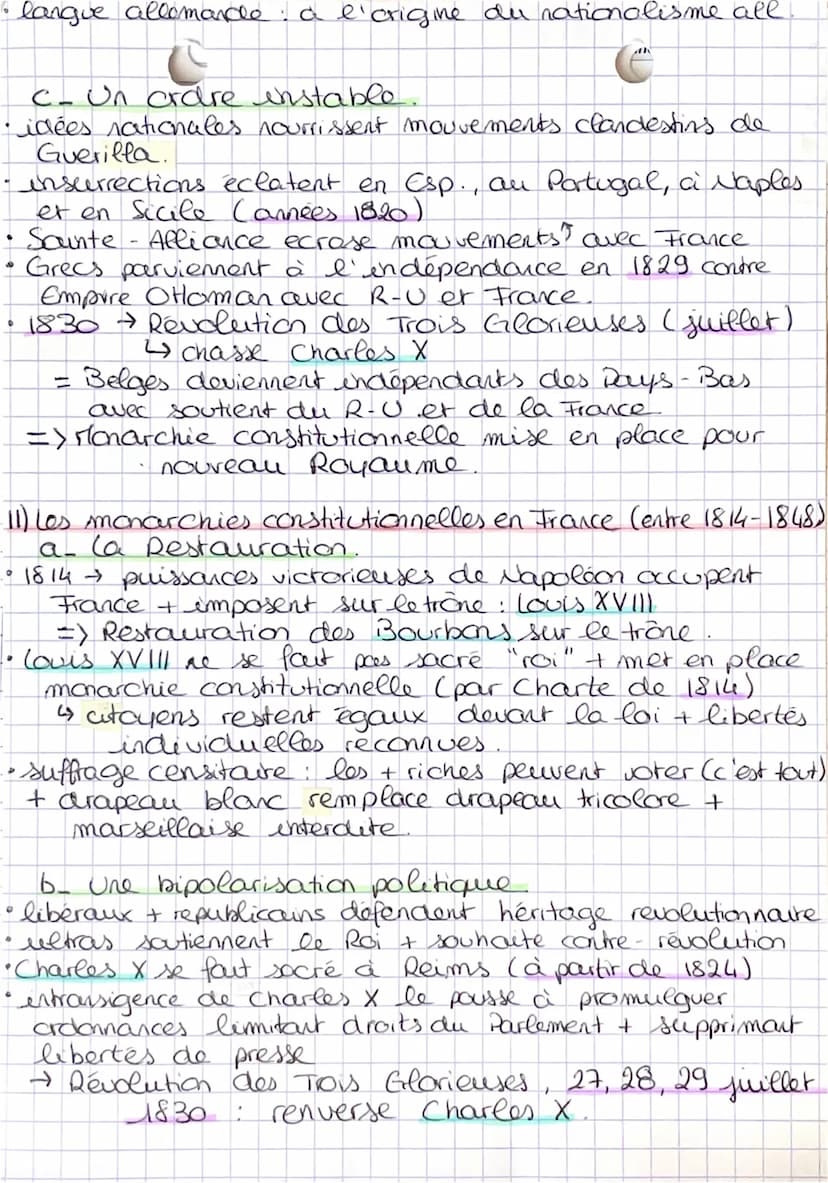 • langue allemande : à l'origine du nationalisme all.
c- Un ordre instable.
• idées nationales nourrissent mouvements clandestins de
Guerilla.
• insurrections éclatent en Esp., au Portugal, à Naples
et en Sicile (années 1820)
• Sainte-Alliance écrase mouvements↑ avec France
• Grecs parviennent à l'indépendance en 1829 contre
Empire Ottoman avec R-U et France.
• 1830 → Révolution des Trois Glorieuses (juillet)
↳ chasse Charles X
= Belges deviennent indépendants des Pays-Bas
avec soutient du R-U et de la France
=> Monarchie constitutionnelle mise en place pour
nouveau Royaume.
II) Les monarchies constitutionnelles en France (entre 1814-1848)
a- La Restauration.
• 1814 → puissances victorieuses de Napoléon occupent
France + imposent sur le trône : Louis XVIII
=> Restauration des Bourbons sur le trône.
• Louis XVIII ne se fait pas sacré "roi" + met en place
monarchie constitutionnelle (par Charte de 1814)
↳ citoyens restent égaux devant la loi + libertés
individuelles reconnues.
• suffrage censitaire : les + riches peuvent voter (c'est tout)
+ drapeau blanc remplace drapeau tricolore +
marseillaise interdite.
b- Une bipolarisation politique
• libéraux + républicains défendent héritage revolutionnaire
• ultras soutiennent le Roi + souhaite contre-révolution
• Charles X se fait sacré à Reims (à partir de 1824)
• intransigence de Charles X le pousse à promulguer
ordonnances limitant droits du Parlement + supprimant
libertés de presse
→ Révolution des Trois Glorieuses, 27, 28, 29 juillet
1830 : renverse Charles X.